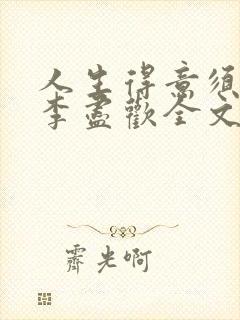 人生得意须
李尽歡全文
霽光啊